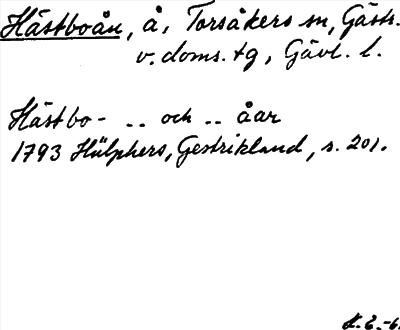 Hästboån, å, Torsåkers sn, Gästr.
v. doms. tg, Gävl. l.
Hästbo- .. och .. åar
1793 Hülphers, Gestrikland, s. 201.